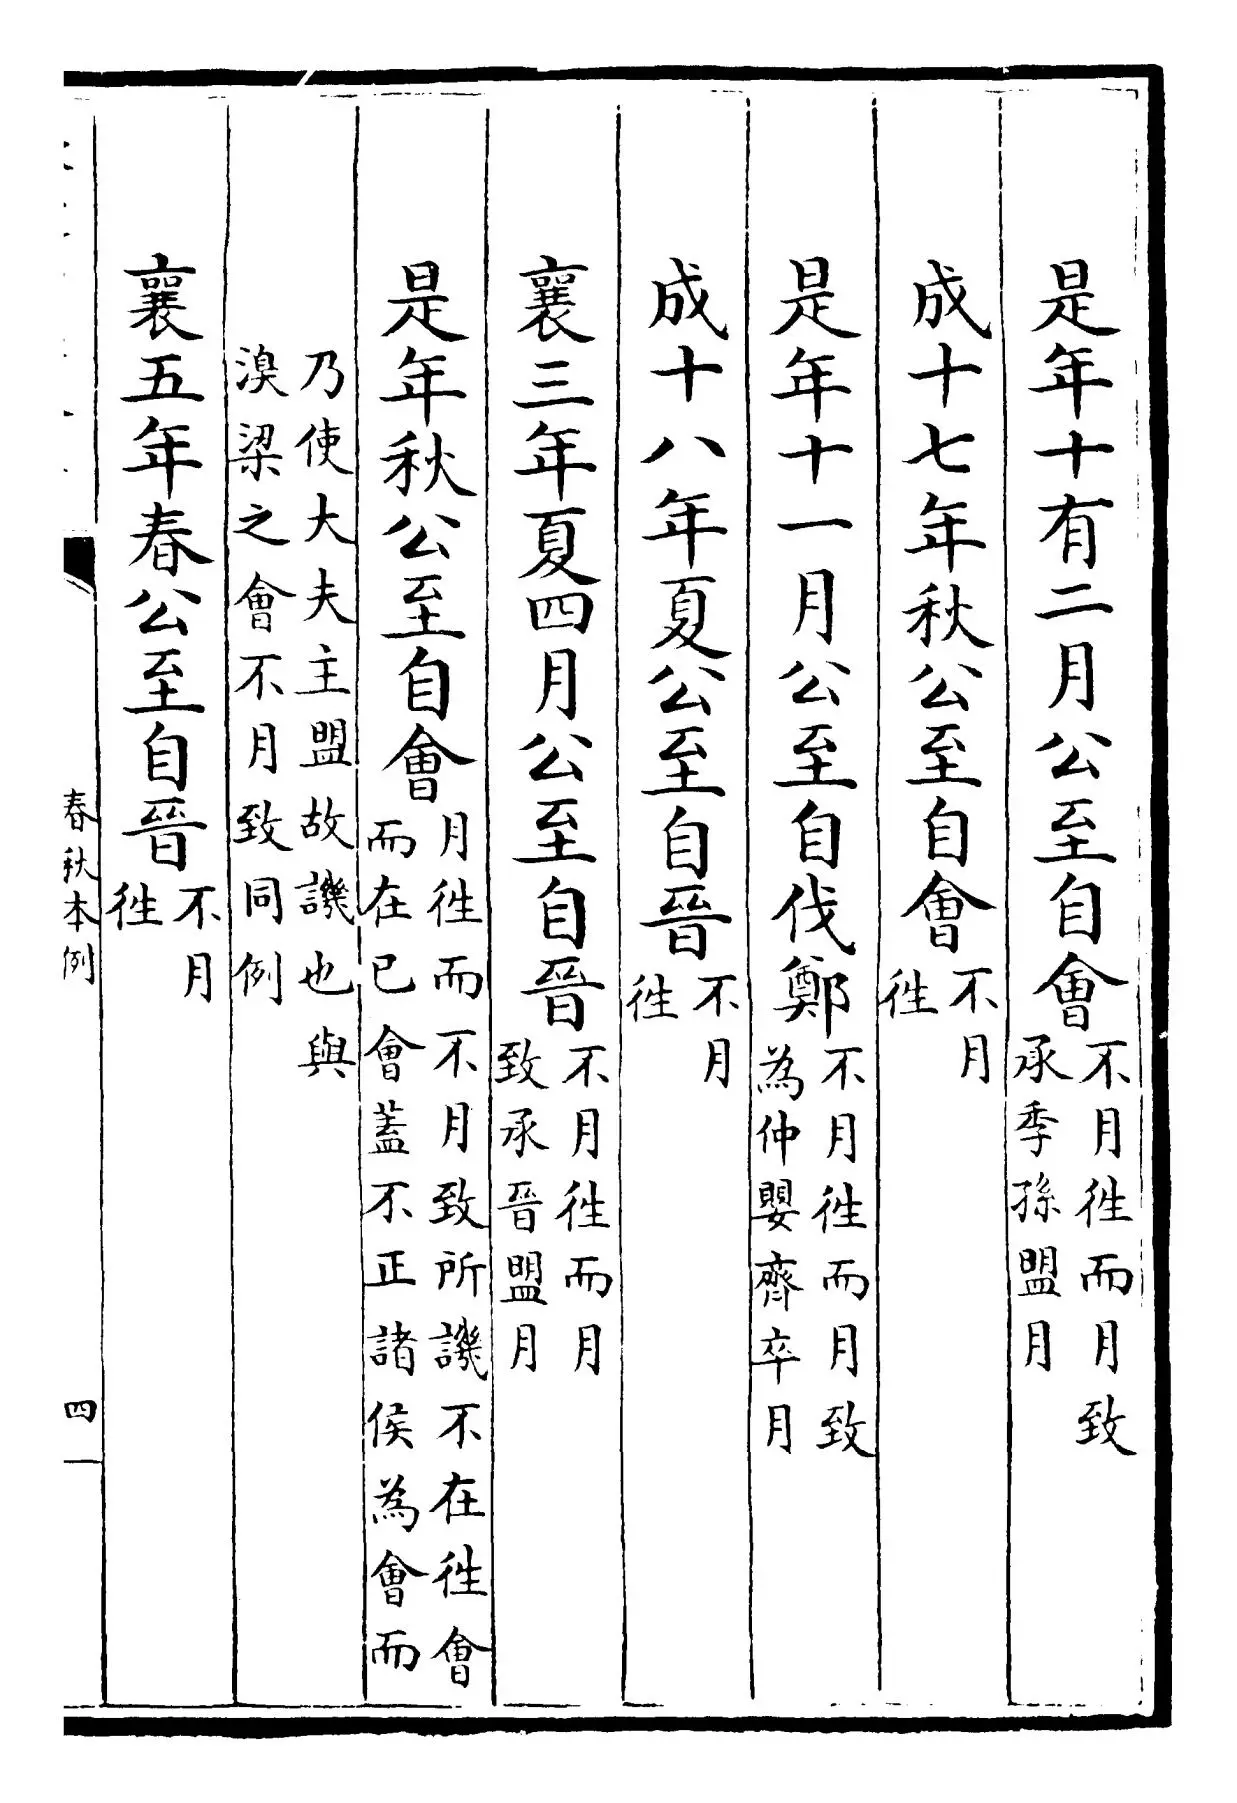 是年十有二月公至自會不月徃而月致承季孫盟月
成十七年秋公至自會不月徃
是年十一月公至自伐鄭不月徃而月致為仲嬰齊卒月
成十八年夏公至自晉不月徃
襄三年夏四月公至自晉不月徃而月致承晉盟月
是年秋公至自會月徃而不月致所譏不在徃會而在已會蓋不正諸侯為會而
乃使大夫主盟故譏也與湨梁之會不月致同例
襄五年春公至自晉不月徃
春秋本例
四